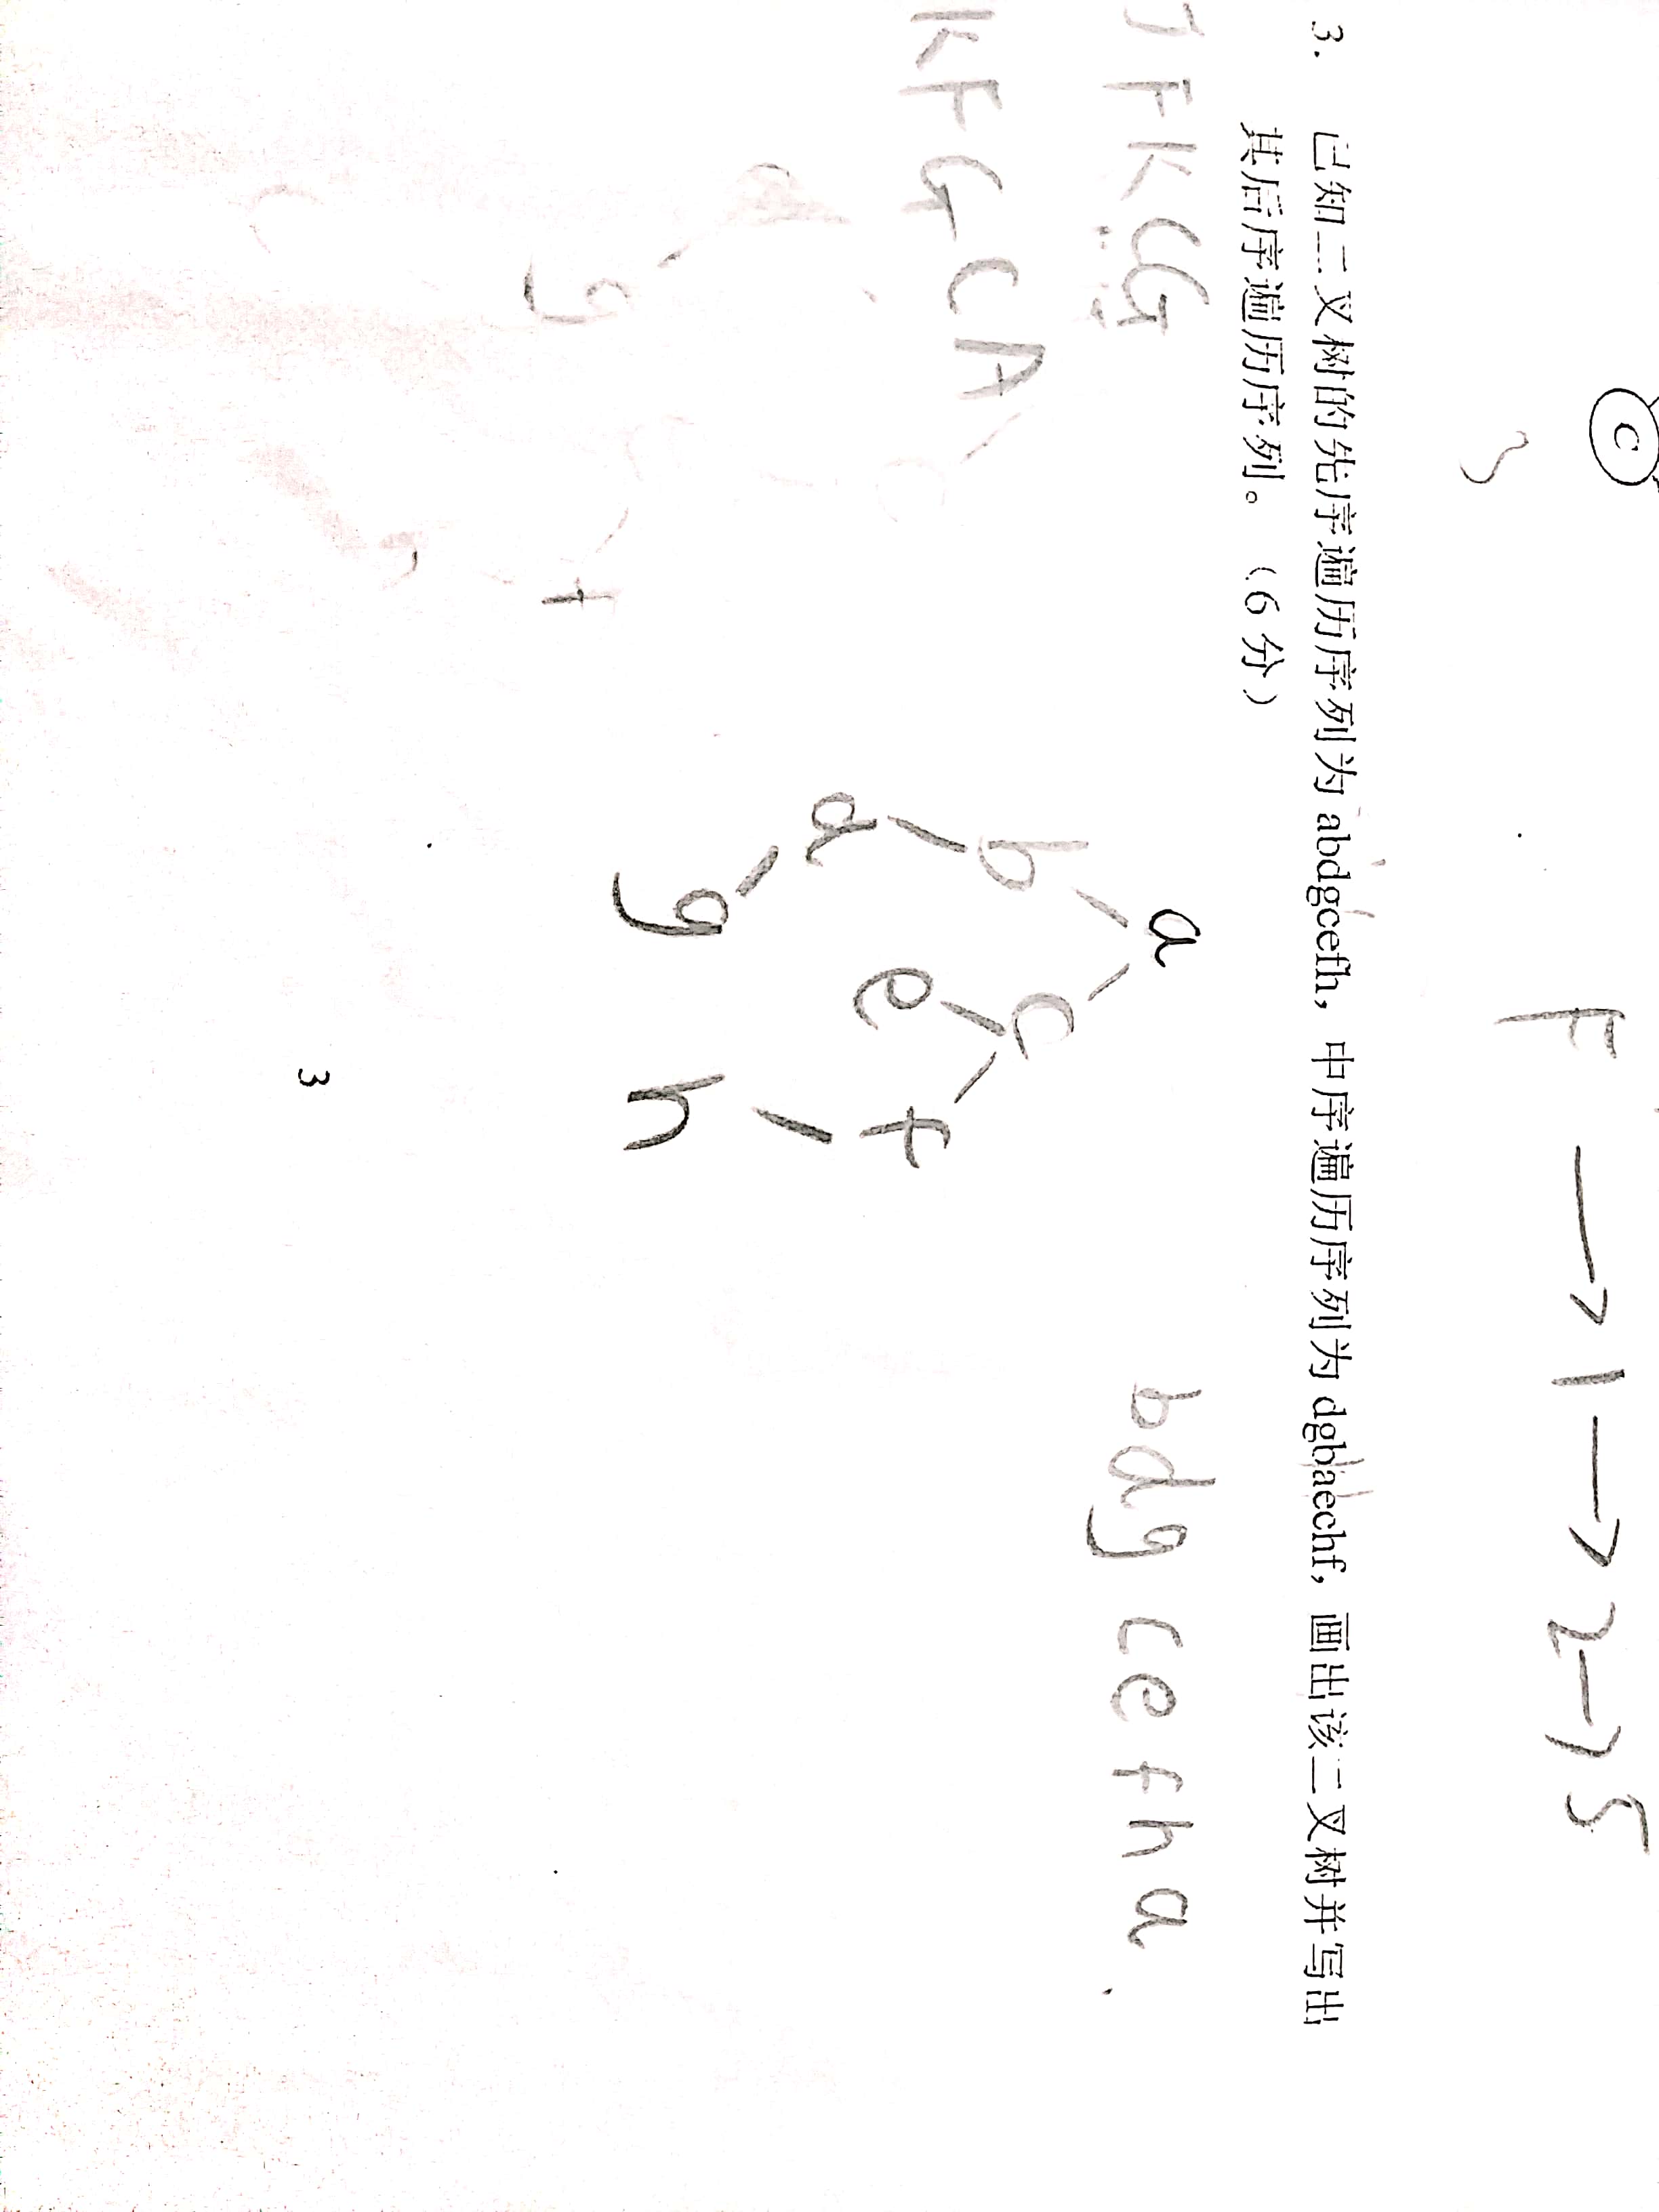 C
F → 1 → 2 → 5
3. 已知二叉树的先序遍历序列为 abdgcefh，中序遍历序列为 dgbaechf，画出该二叉树并写出
其后序遍历序列。（6 分）
J F K C G
a
b d g c e f h a
b c
K F G C A
e f
d
g h
g f
3